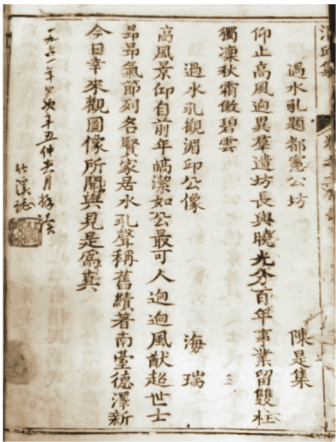 過水孔題都憲公坊
陳是集
仰止高風迥異羣遺坊長與曉光分百年事業留雙柱
獨凜秋霜傲碧雲
過水孔觀湄邱公像
海瑞
高風景仰自前年皜潔如公最可人迥迥風猷超世士
昻昻氣節列名賢家居水孔聲稱舊績著南臺德澤新
今日幸來觀圖像所聞與見是爲真
一九六一年歲次辛丑仲六月